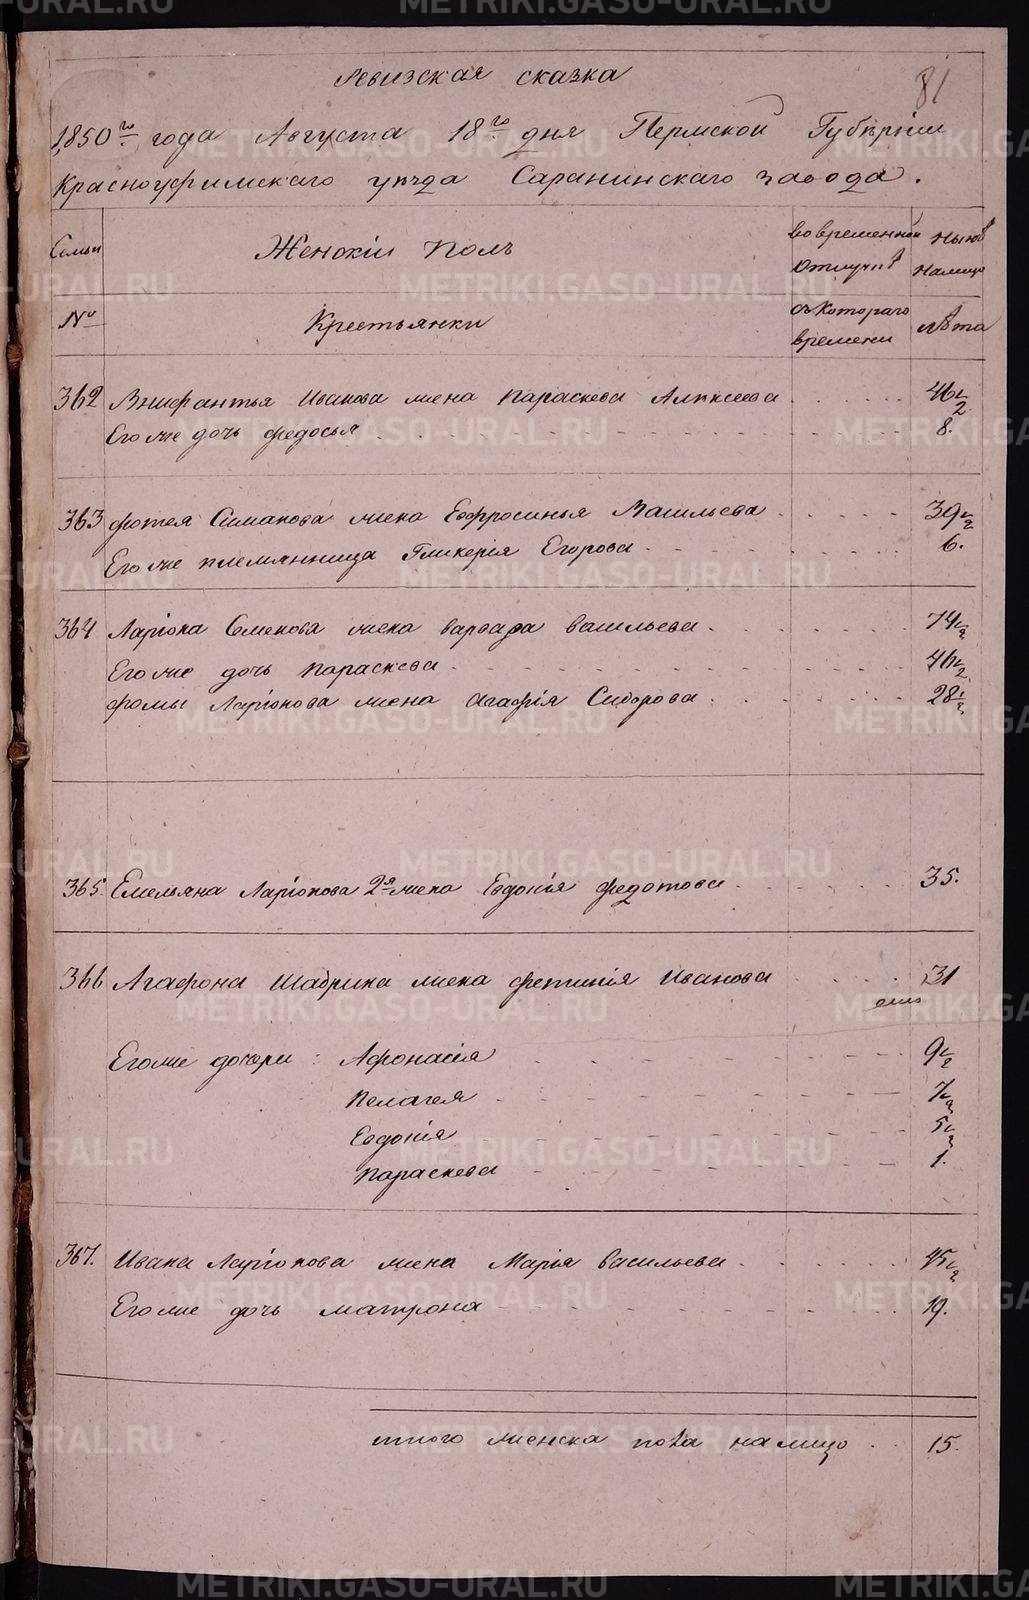 Ревизская сказка
81
1850го года Августа 18го дня Пермской Губернии
Красноуфимскаго уезда Саранинскаго завода.
Семьи
Женскій полъ
во временной отлучкѣ
ныне на лицо
№
Крестьянки
съ котораго времени
лѣта
362 Внифантья Иванова жена Параскева Алексеева 46 1/2
Его же дочь федосья 8.
363 фотея Симанова жена Евфросинья Васильева 39 1/2
Его же племянница Гликерія Егорова 6.
364 Ларіона Семенова жена варвара васильева 74 1/2
Его же дочь параскева 46 1/2
фомы Ларіонова жена Агафія Сидорова 28 1/2
365. Емельяна Ларіонова 2я жена Евдокія федотова 35.
366 Агафона Шабрина жена фетинія Иванова 31
Его же дочери: Афонасія 9 1/2
Пелагея 7 1/2
Евдокія 5 1/2
Параскева 1.
367. Ивана Ларіонова жена Марія васильева 45 1/2
Его же дочь матрона 19.
итого женска пола на лицо 15.
METRIKI.GASO-URAL.RU